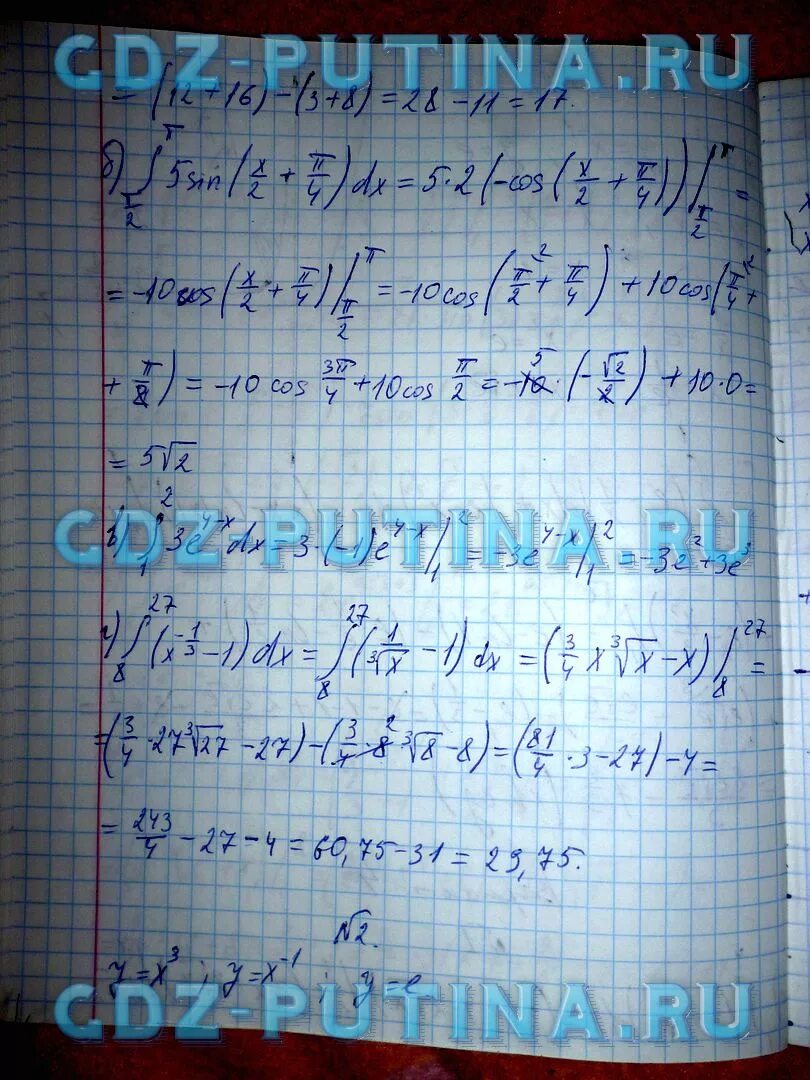 GDZ-PUTINA.RU
= (12+16) - (3+8) = 28 - 11 = 17.
б) ∫_{π/2}^{π} 5sin(x/2 + π/4)dx = 5·2(-cos(x/2 + π/4))|_{π/2}^{π} =
= -10cos(x/2 + π/4)|_{π/2}^{π} = -10cos(π/2 + π/4) + 10cos(π/4 +
+ π/2) = -10 cos 3π/4 + 10cos π/2 = -10·(-√2/2) + 10·0 =
= 5√2
GDZ-PUTINA.RU
в) ∫_1^2 3e^{4-x}dx = 3·(-1)e^{4-x}|_1^2 = -3e^{4-x}|_1^2 = -3e^2+3e^3
г) ∫_8^{27} (x^{-1/3} - 1)dx = ∫_8^{27} (1/∛x - 1)dx = (3/4 x∛x - x)|_8^{27} =
= (3/4·27∛27 - 27) - (3/4·8∛8 - 8) = (81/4·3 - 27) - 4 =
= 243/4 - 27 - 4 = 60,75 - 31 = 29,75.
№2.
y = x^3; y = x^{-1}; y = e
GDZ-PUTINA.RU